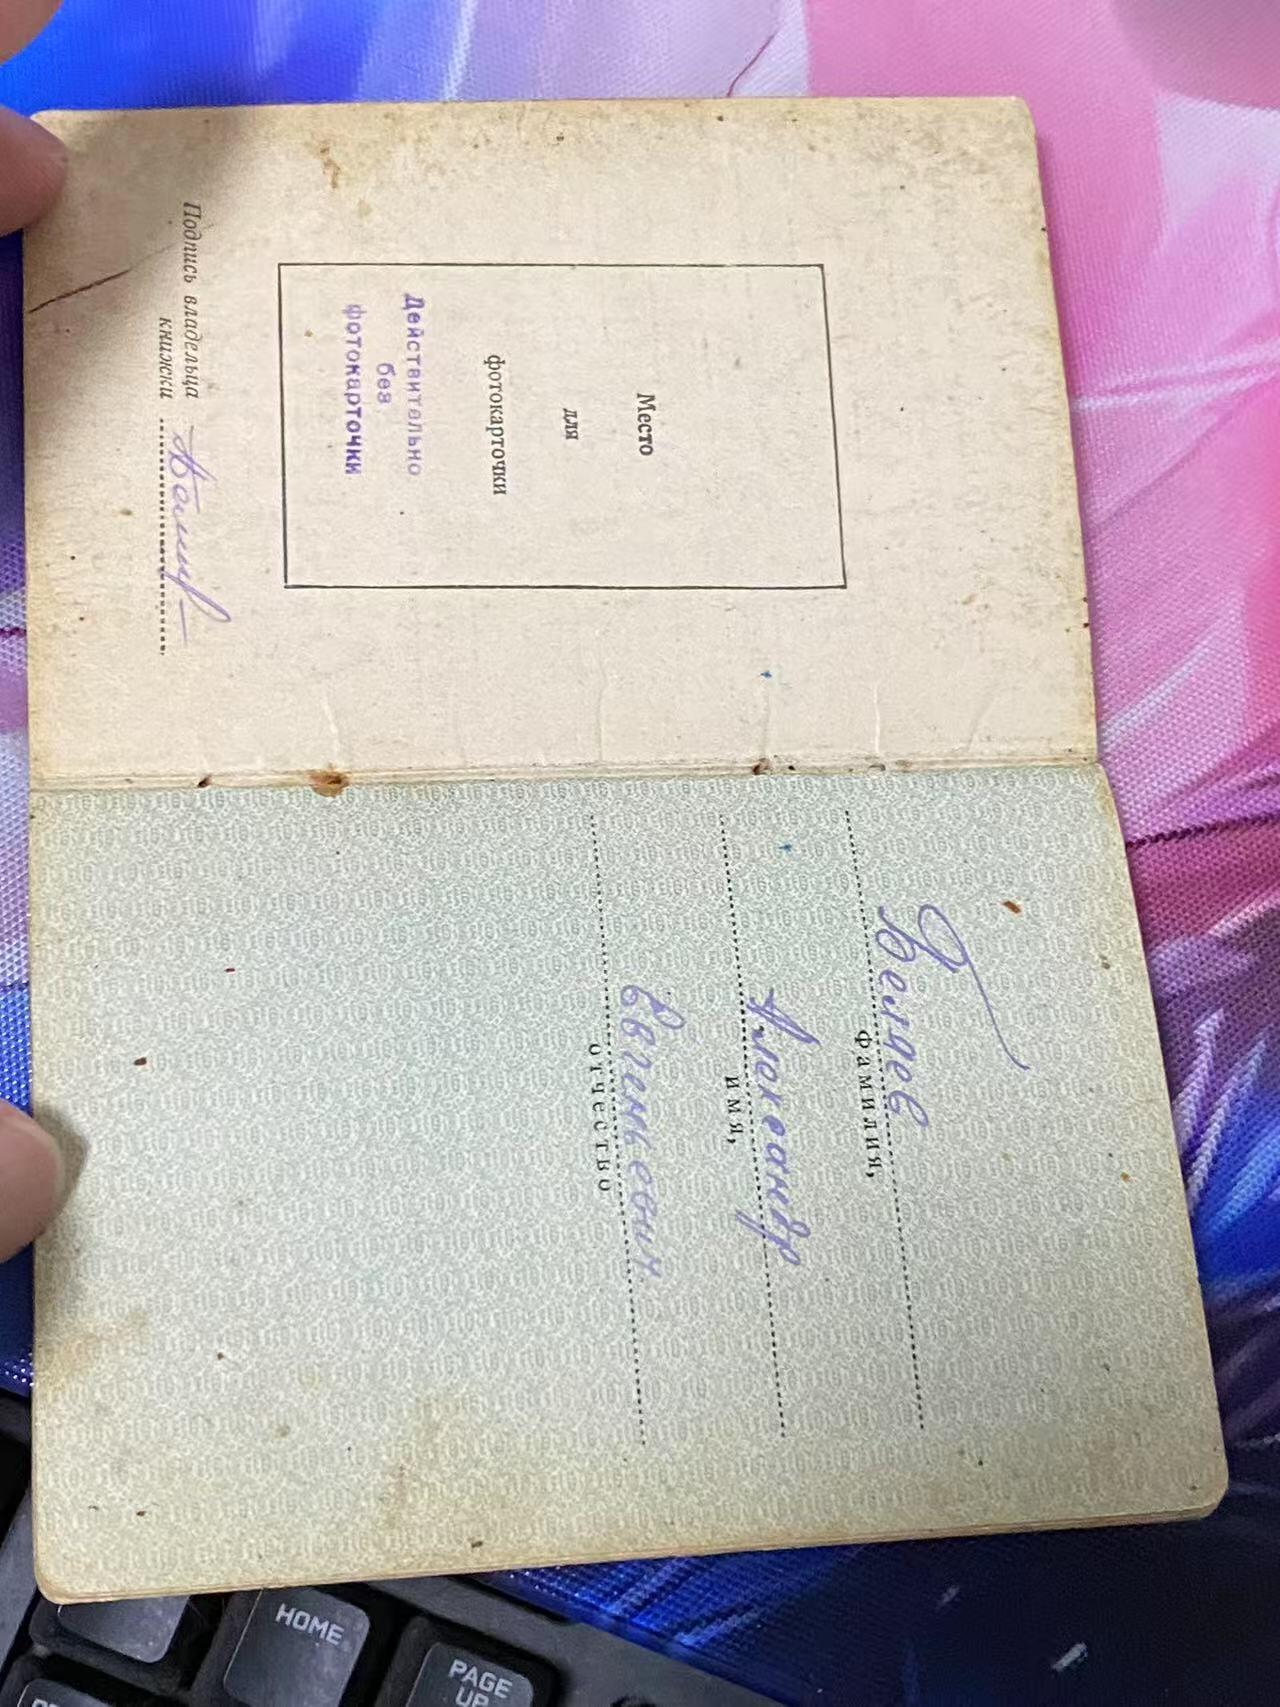 Место
для
фотокарточки
Действительно
без
фотокарточки
Подпись владельца
книжки
Беляев
фамилия,
Александр
имя,
Евгеньевич
отчество
HOME
PAGE
UP